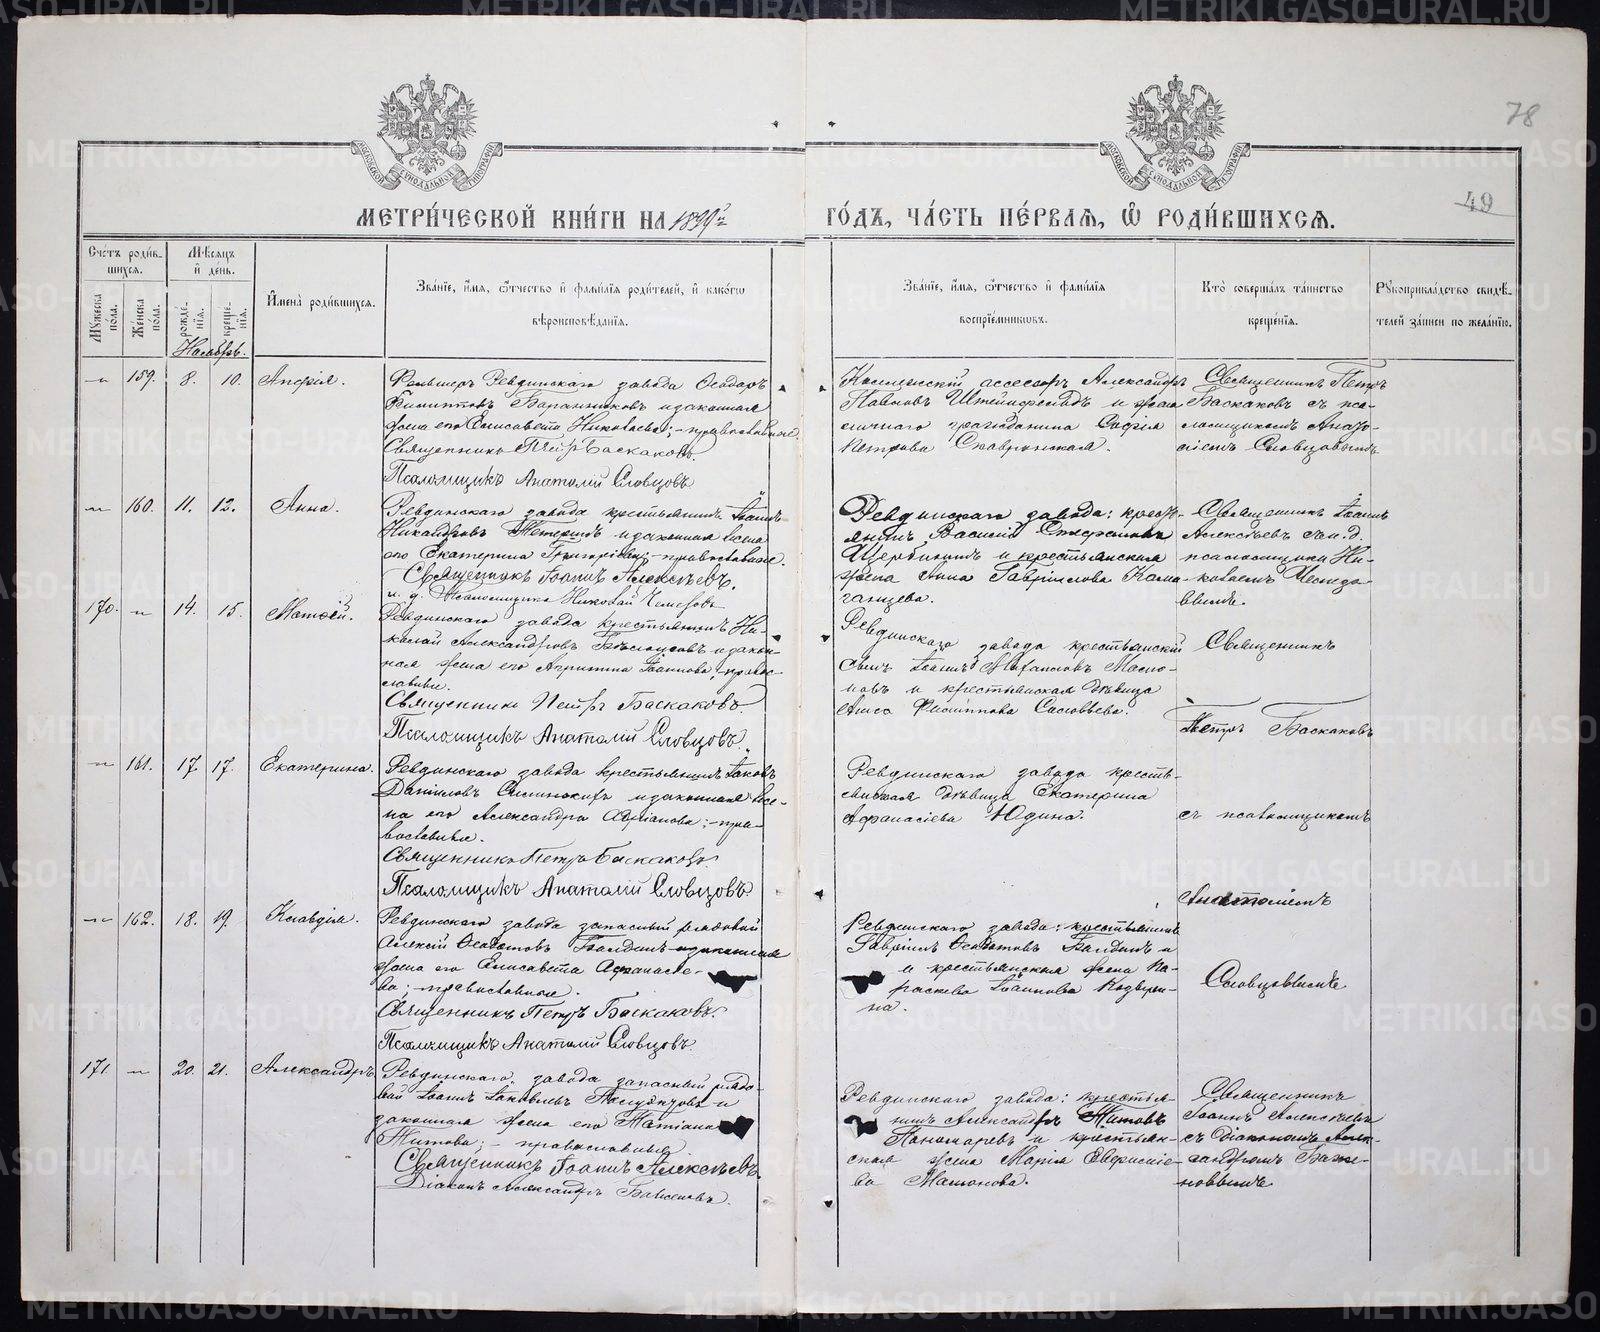 78
49
МЕТРИЧЕСКОЙ КНИГИ НА 1899й
ГОДЪ, ЧАСТЬ ПЕРВАЯ, Ѿ РОДИВШИХСЯ.
Счетъ родив-
шихся.
Мѣсяцъ
и день.
Мужеска пола.
Женска пола.
рожде-
нія.
креще-
нія.
Ноябрь.
Имена родившихся.
Званіе, имя, отчество и фамилія родителей, и какогѡ
вѣроисповѣданія.
Званіе, имя, отчество и фамилія
воспріемниковъ.
Кто совершалъ таинство
крещенія.
Рукоприкладство свидѣ-
телей записи по желанію.
159. 8. 10.
Фельдшеръ Ревдинскаго завода Ѳеодоръ
Филипповъ Баранниковъ и законная
жена его Елисавета Николаева; православные.
Священникъ Петръ Баскаковъ.
Псаломщикъ Анатолій Словцовъ
ассессоръ Александръ
Павловъ Штейнфельдъ и жена
гражданина Софія
Петрова
Священникъ Петръ
Баскаковъ съ пса-
ломщикомъ Анато-
ліемъ Словцовымъ
160. 11. 12. Анна.
Ревдинскаго завода крестьянинъ Іоаннъ
Никандровъ и законная жена
его Екатерина Григорьева; православные.
Священникъ Іоаннъ Алексѣевъ.
и. д. Псаломщика Николай
Ревдинскаго завода: кресть-
янинъ Василій Стефановъ
Щербининъ и крестьянская
жена Анна Гавріилова Кама-
ганцева.
Священникъ Іоаннъ
Алексѣевъ съ и. д.
псаломщика Ни-
колаемъ
170. 14. 15. Матѳей.
Ревдинскаго завода крестьянинъ Ни-
колай Александровъ Бѣлоусовъ и закон-
ная жена его Іоаннова; право-
славные.
Священникъ Петръ Баскаковъ.
Псаломщикъ Анатолій Словцовъ.
Ревдинскаго завода крестьянскій
сынъ Іоаннъ Михаиловъ
и крестьянская дѣвица
Филиппова Соловьева.
Священникъ
Петръ Баскаковъ
161. 17. 17. Екатерина.
Ревдинскаго завода крестьянинъ Іаковъ
Даніиловъ и законная же-
на его Александра Адріанова; пра-
вославные.
Священникъ Петръ Баскаковъ.
Псаломщикъ Анатолій Словцовъ.
Ревдинскаго завода кресть-
янская дѣвица Екатерина
Афанасіева Юдина.
съ псаломщикомъ
Анатоліемъ
162. 18. 19. Клавдія.
Ревдинскаго завода запасный рядовой
Алексій Балдинъ и законная
жена его Елисавета Афанасіе-
ва; православные.
Священникъ Петръ Баскаковъ.
Псаломщикъ Анатолій Словцовъ.
Ревдинскаго завода: крестьянинъ
Гавріилъ Балдинъ и
и крестьянская жена Па-
раскева Іоаннова Кодзери-
на.
Словцовымъ
171 20. 21. Александръ
Ревдинскаго завода запасный рядо-
вой Іоаннъ Іаковлевъ и
законная жена его Татіана
Титова; православные
Священникъ Іоаннъ Алексѣевъ.
Діаконъ Александръ Баженовъ.
Ревдинскаго завода: крестья-
нинъ Александръ Титовъ
Пономаревъ и крестьян-
ская жена Марія Евфиміе-
ва Мамонова.
Священникъ
Іоаннъ Алексѣевъ
съ діакономъ Алек-
сандромъ Баже-
новымъ